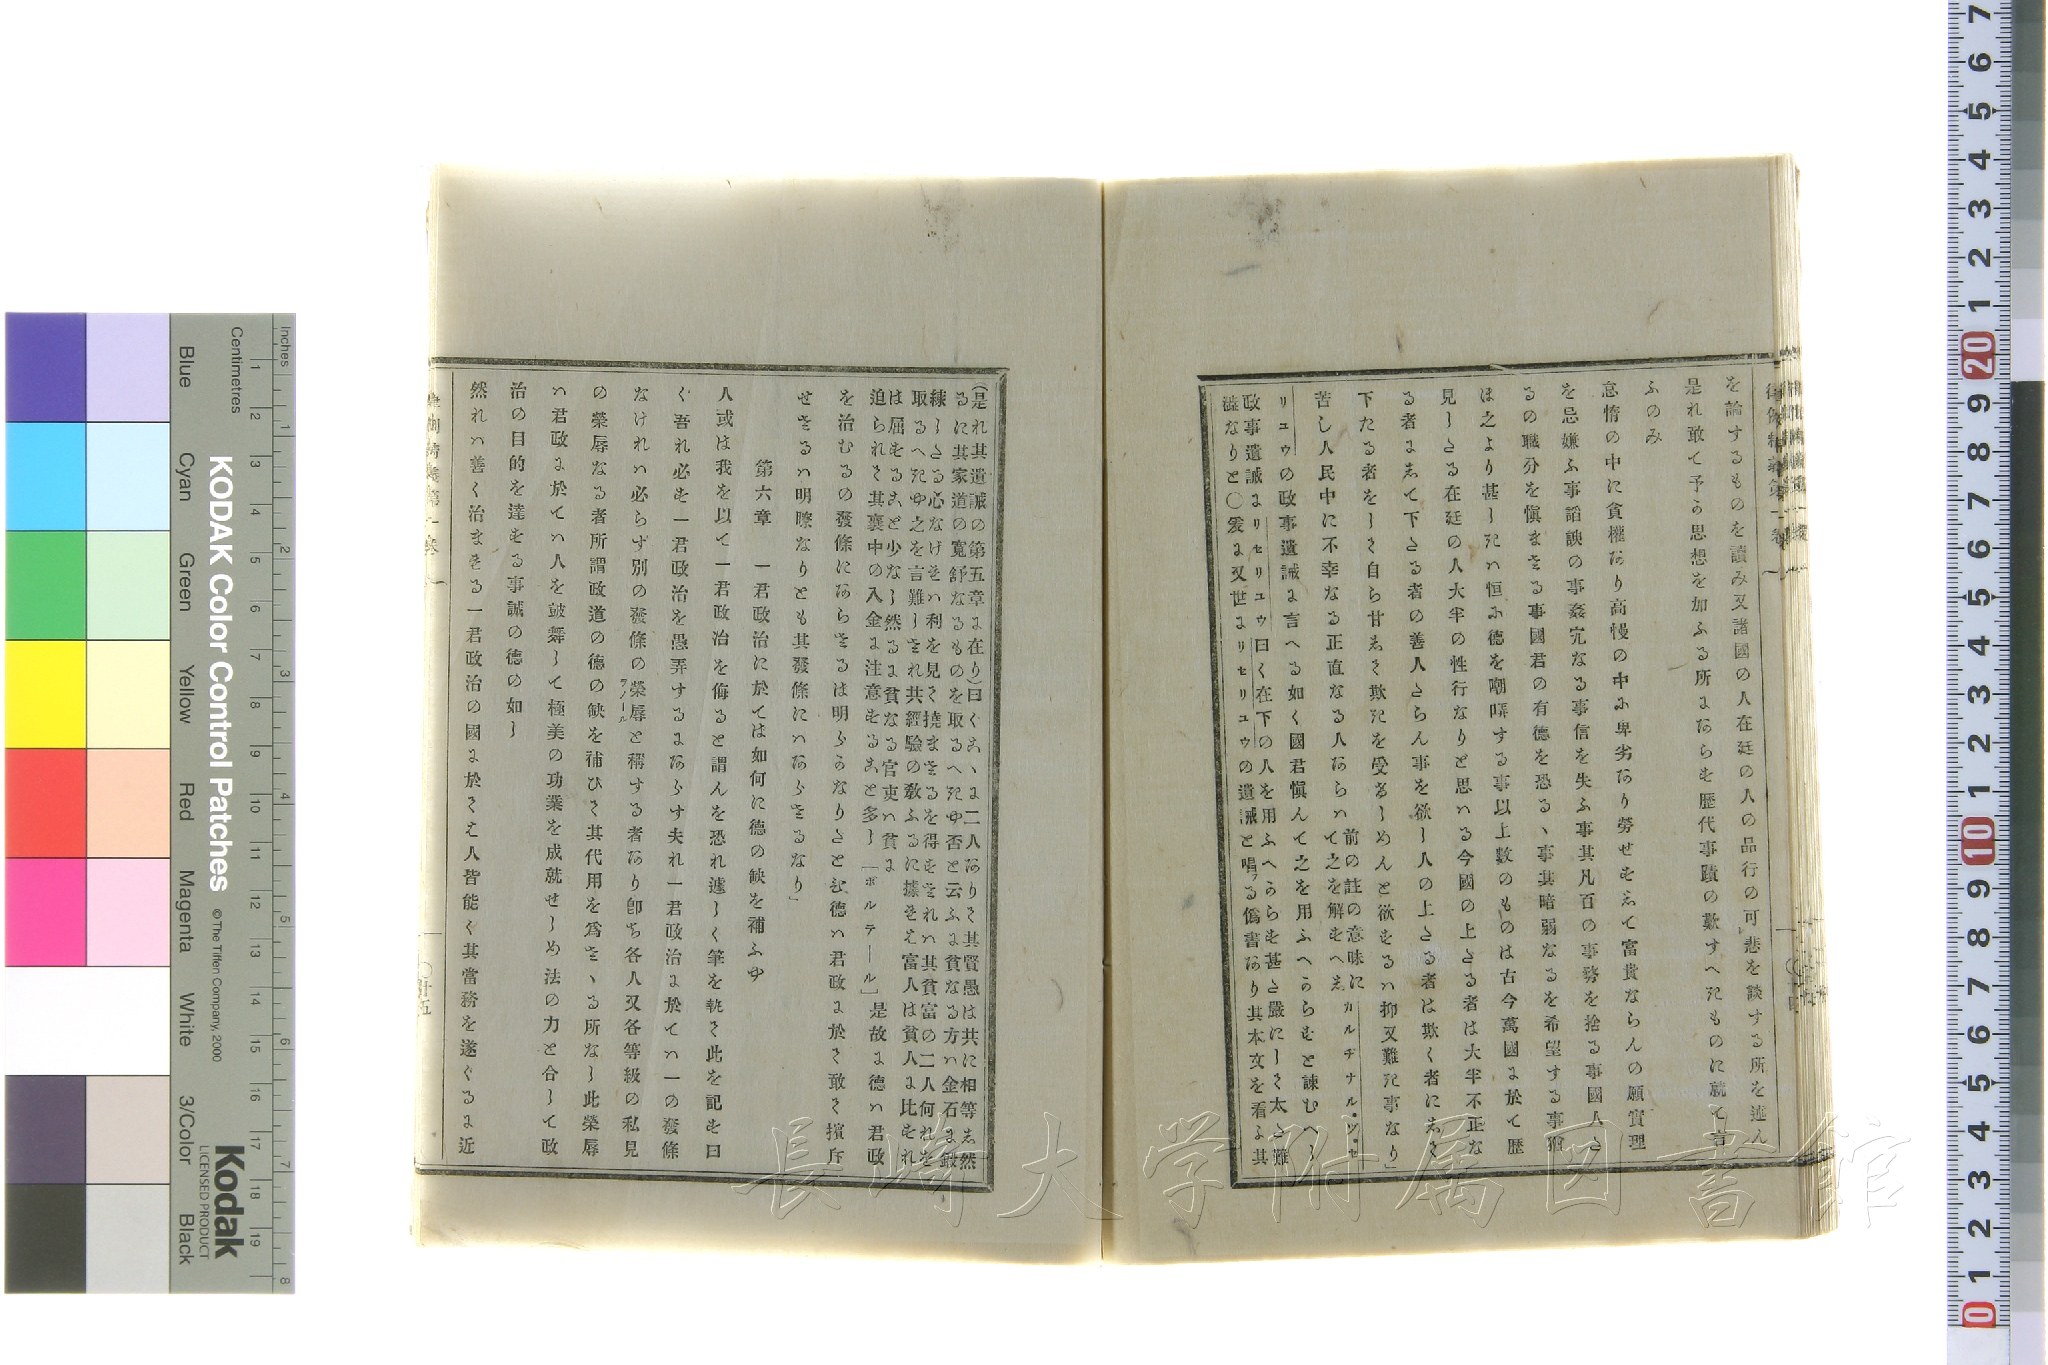 を論するものを讀み又諸國の人在廷の人の品行の可悲を談する所を
是れ敢て予の思想を加ふる所にあらす歴代事蹟の歎すへきものに就て言
ふのみ
怠惰の中に貪權あり高慢の中に卑劣あり勞せすして富貴ならんの願實理
を忌嫌ふ事諂諛の事姦宄なる事信を失ふ事其凡百の事務を捨る事國人た
るの職分を愼まさる事國君の有德を恐るヽ事其暗弱なるを希望する事猶
ほ之より甚しきハ恒に德を嘲哢する事以上數のものは古今萬國に於て歷
見したる在廷の人大半の性行なりと思ハる今國の上たる者は大半不正な
る者にして下たる者の善人たらん事を欲し人の上たる者は欺く者にして
下たる者をして自ら甘して欺きを受るしめんと欲するハ抑又難き事なり」
苦し人民中に不幸なる正直なる人あらハ
前の註の意味に
て之を解すへし
カルヂナル・ヅ・セ
リユウの政事遺誡に言へる如く國君愼んて之を用ふへからすと諫むへし
政事遺誡にリセリユウ曰く在下の人を用ふへからす甚た嚴にして太た難
澁なりと〇爰に又世にリセリユウの遺誡と唱ふる僞書あり其本文を看よ其
(是れ其遺誡の第五章に在り)曰くこヽに二人ありて其賢愚は共に相等し然
るに其家道の寛舒なるものを取るへきや否と云ふに貧なる方ハ金石に鍛
練したる心なけれハ利を見て撓まさるを得されハ其貧富の二人何れを
取るへきや之を言難しされ共經驗の敎ふるに據れは富人は貧人に比すれ
は屈すること少なし然るに貧なる官吏ハ貧に
迫られて其嚢中の入金に注意すること多し「ボルテール」
是故に德ハ君政
を治むるの發條にあらさるは明らかなりたとひ德ハ君政に於て敢て擯斥
せさるハ明瞭なりとも其發條にハあらさるなり」
第六章　一君政治に於ては如何に德の缺を補ふや
人或は我を以て一君政治を侮ると謂んを恐れ遽しく筆を執て此を記す曰
く吾れ必す一君政治を愚弄するにあらす夫れ一君政治に於てハ一の發條
なけれハ必らず別の發條の榮辱と稱する者あり卽ち各人又各等級の私見
ヲノール
の榮辱なる者所謂政道の德の缺を補ひて其代用を爲さヽる所なし此榮辱
ハ君政に於てハ人を鼓舞して極美の功業を成就せしめ法の力と合して政
治の目的を達する事誠の德の如し
然れハ善く治まれる一君政治の國に於ては人皆能く其當務を遂くるに近
〇廿五
長崎大学附属図書館
KODAK Color Control Patches
© The Tiffen Company, 2000
Kodak
LICENSED PRODUCT
Inches
Centimetres
Blue
Cyan
Green
Yellow
Red
Magenta
White
3/Color
Black